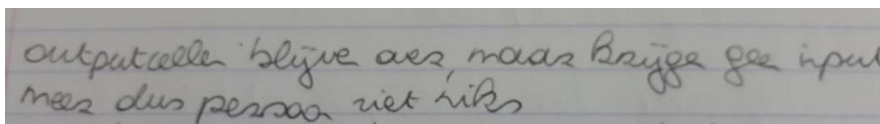 outputcelle blijve over, maar krijge gee input
meer dus persoo ziet niks